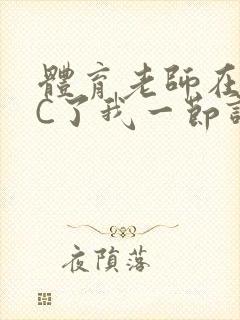 體育老師在
C了我一節
夜隕落